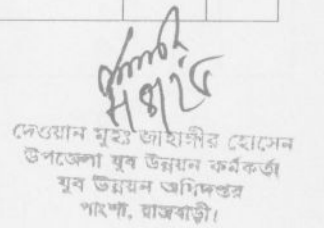 দেওয়ান মুহঃ জাহাঙ্গীর হোসেন
উপজেলা যুব উন্নয়ন কর্মকর্তা
যুব উন্নয়ন অধিদপ্তর
পাংশা, রাজবাড়ী।